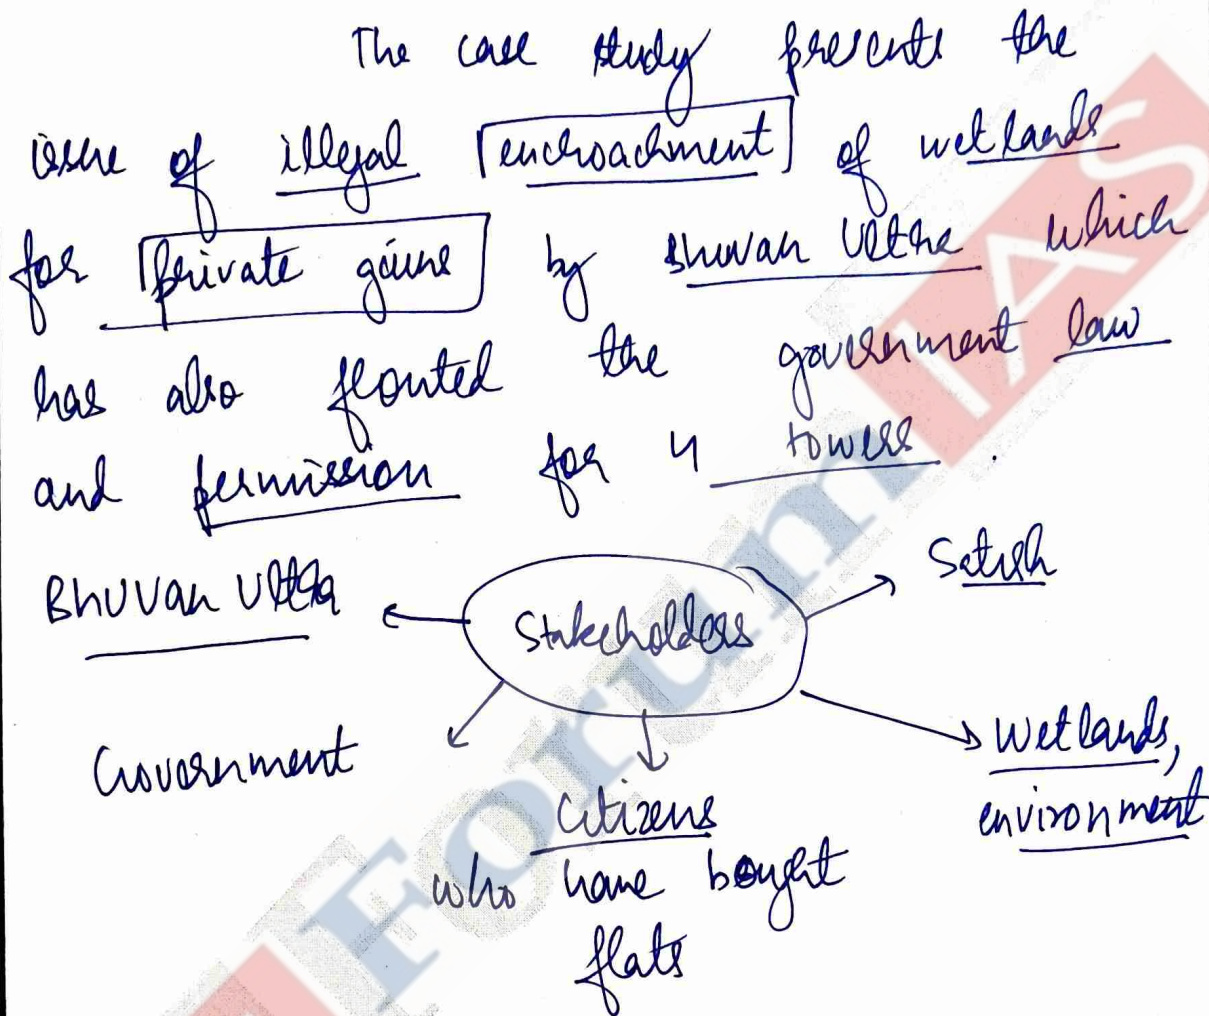 The case study presents the
issue of illegal encroachment of wetlands
for private gains by Bhuvan Ultha which
has also flouted the government law
and permission for 4 towers.
Bhuvan Ultha
Stakeholders
Satish
Government
Citizens
who have bought
flats
Wetlands,
environment
Forum IAS